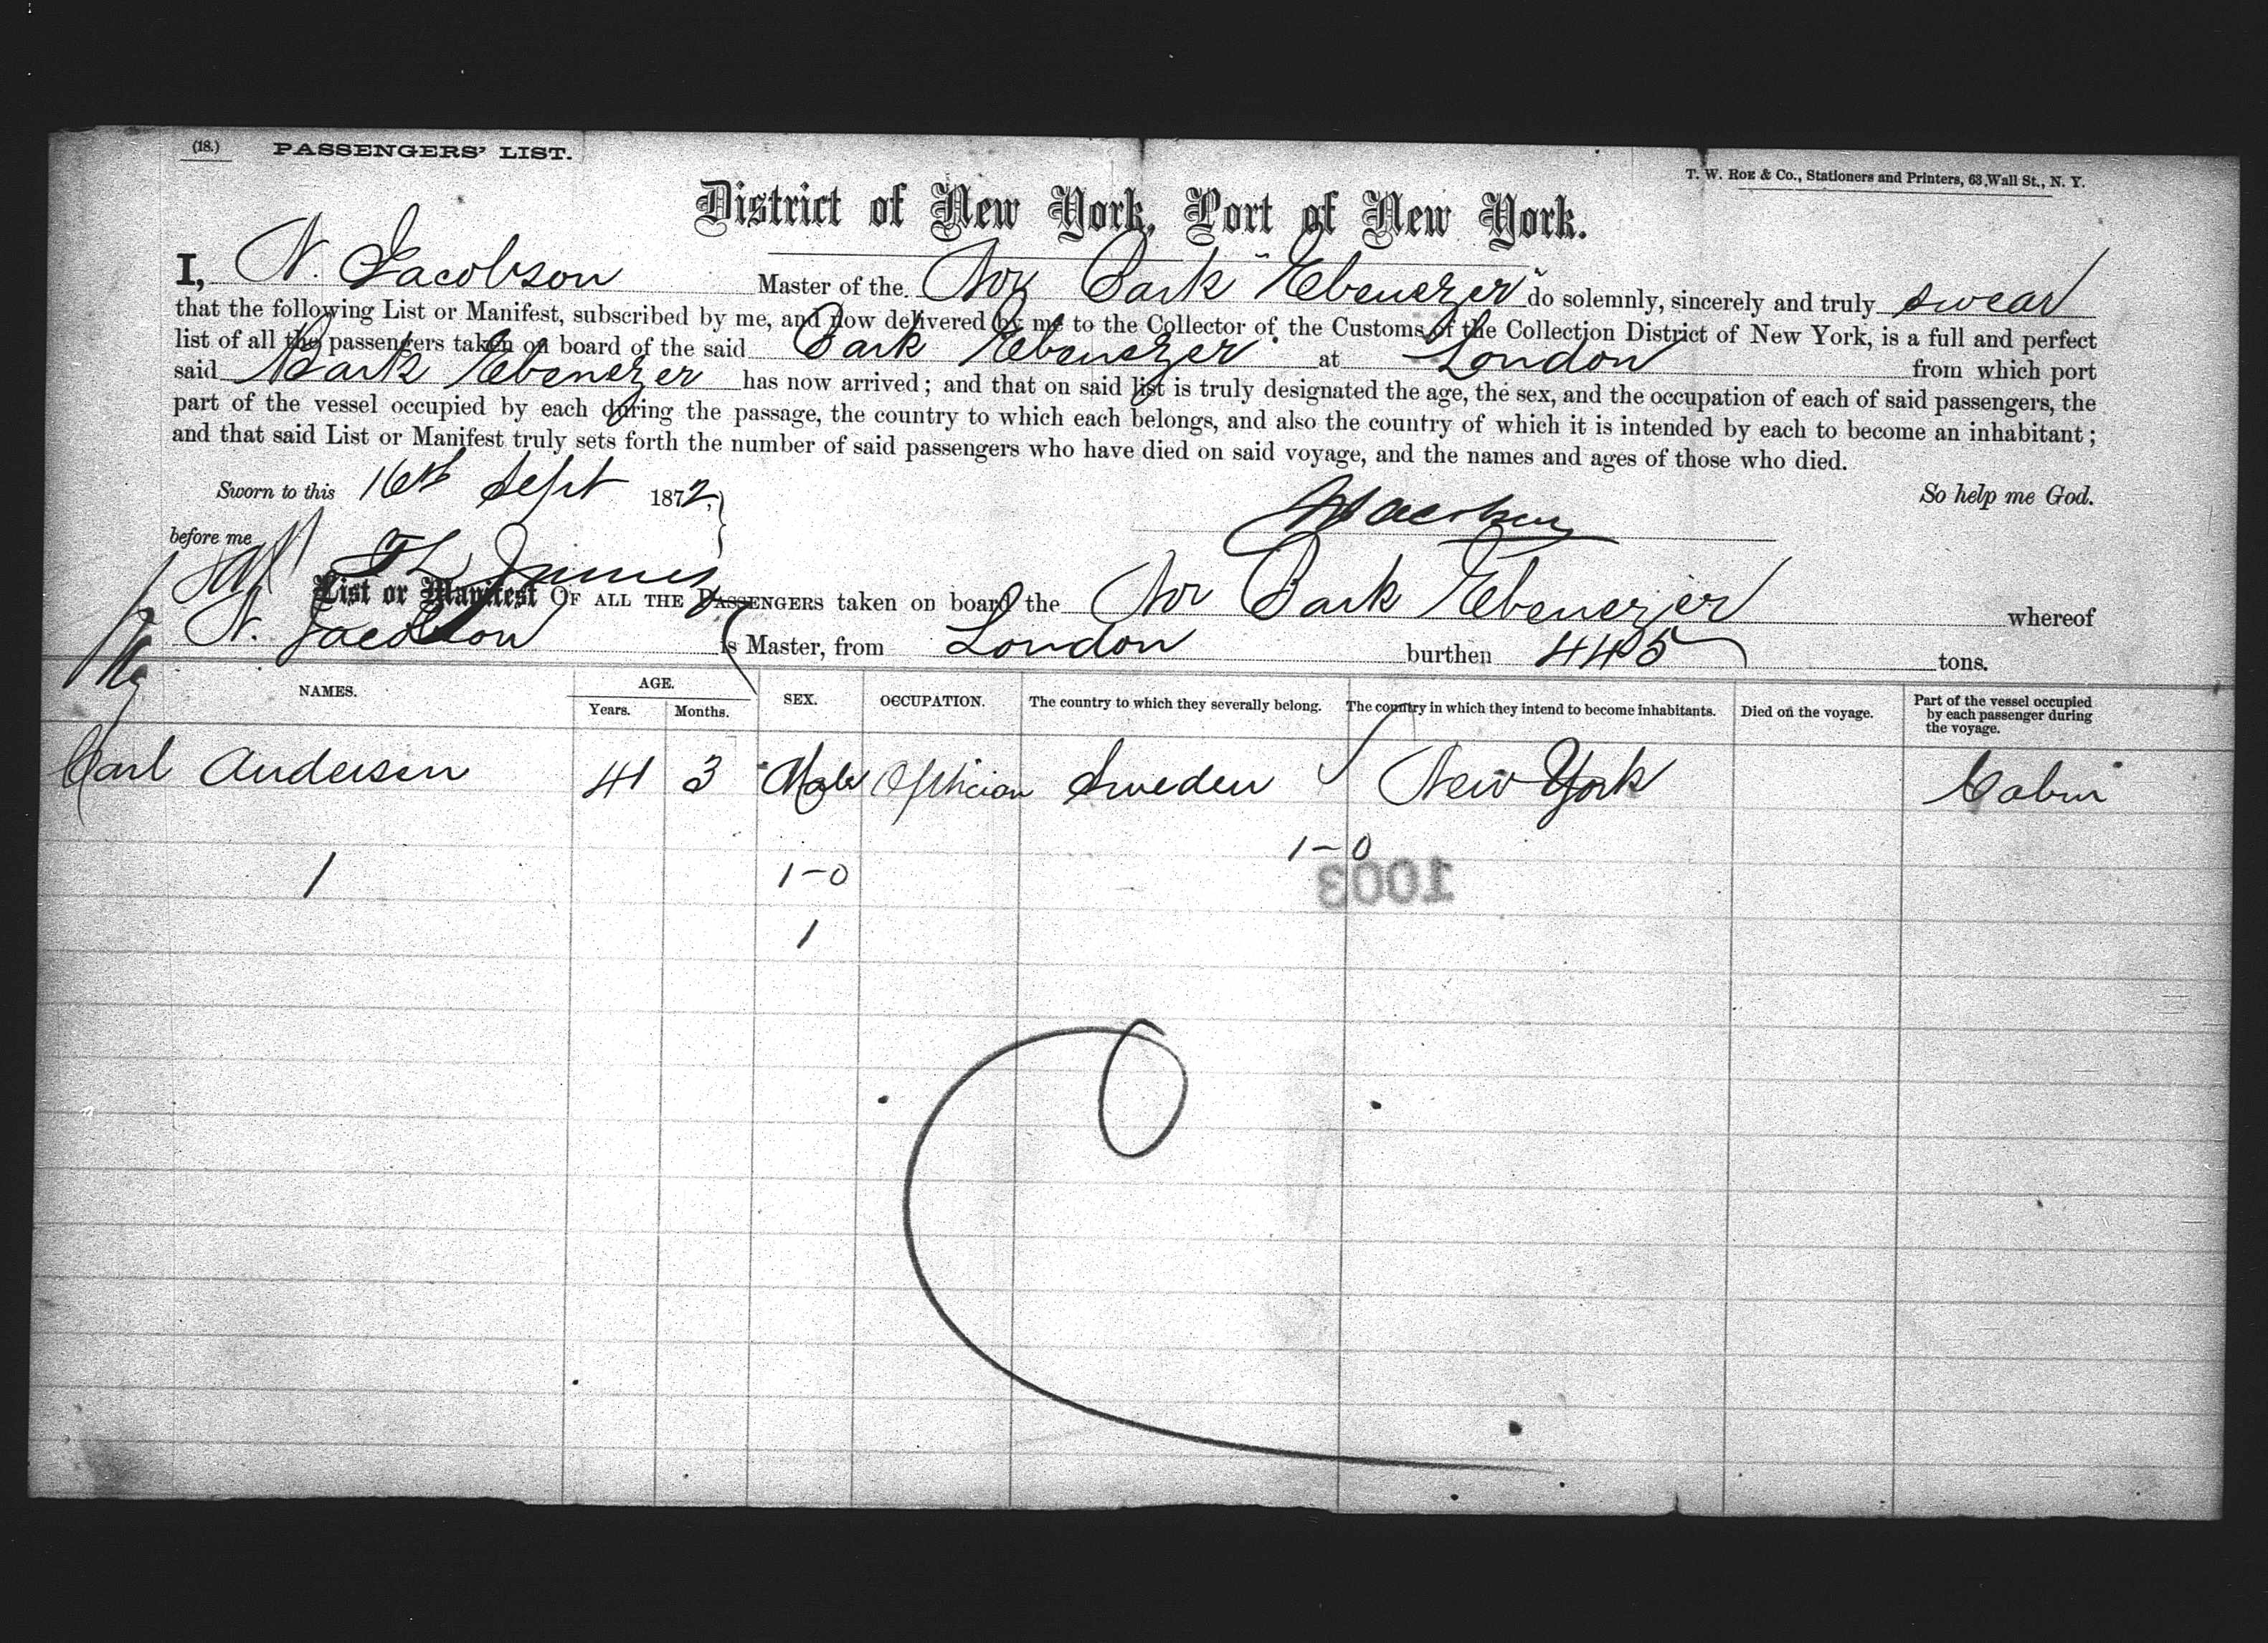 (18.) PASSENGERS' LIST.
T. W. ROE & Co., Stationers and Printers, 63 Wall St., N. Y.
District of New York, Port of New York.
I, N. Jacobson Master of the Nor Bark "Ebenezer" do solemnly, sincerely and truly swear
that the following List or Manifest, subscribed by me, and now delivered by me to the Collector of the Customs of the Collection District of New York, is a full and perfect
list of all the passengers taken on board of the said Bark Ebenezer at London from which port
said Bark Ebenezer has now arrived; and that on said list is truly designated the age, the sex, and the occupation of each of said passengers, the
part of the vessel occupied by each during the passage, the country to which each belongs, and also the country of which it is intended by each to become an inhabitant;
and that said List or Manifest truly sets forth the number of said passengers who have died on said voyage, and the names and ages of those who died.
Sworn to this 16th Sept 1872, So help me God.
before me
List or Manifest OF ALL THE PASSENGERS taken on board the Nor Bark Ebenezer whereof
N. Jacobson is Master, from London burthen 445 tons.
NAMES. AGE. Years. Months. SEX. OCCUPATION. The country to which they severally belong. The country in which they intend to become inhabitants. Died on the voyage. Part of the vessel occupied by each passenger during the voyage.
Carl Andersen 41 3 Male Optician Sweden New York Cabin
1 1-0 1-0
1003
1